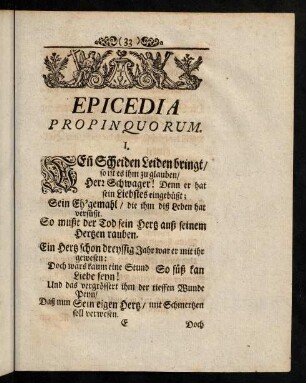 (33)
EPICEDIA
PROPINQUORUM.
I.
WEñ Scheiden Leiden bringt/
so ist es ihm zu glauben/
Herr Schwager! Denn er hat
sein Liebstes eingebüßt;
Sein Ehgemahl/ die ihm diß Leben hat
versüßt.
So mußte der Tod sein Hertz auß seinem
Hertzen rauben.
Ein Hertz schon dreyssig Jahr war er mit ihr
gewesen:
Doch wars kaum eine Stund So süß kan
Liebe seyn!
Und das vergrössert ihm der tieffen Wunde
Peyn/
Daß nun Sein eigen Hertz/ mit Schmertzen
soll verwesen.
E
Doch